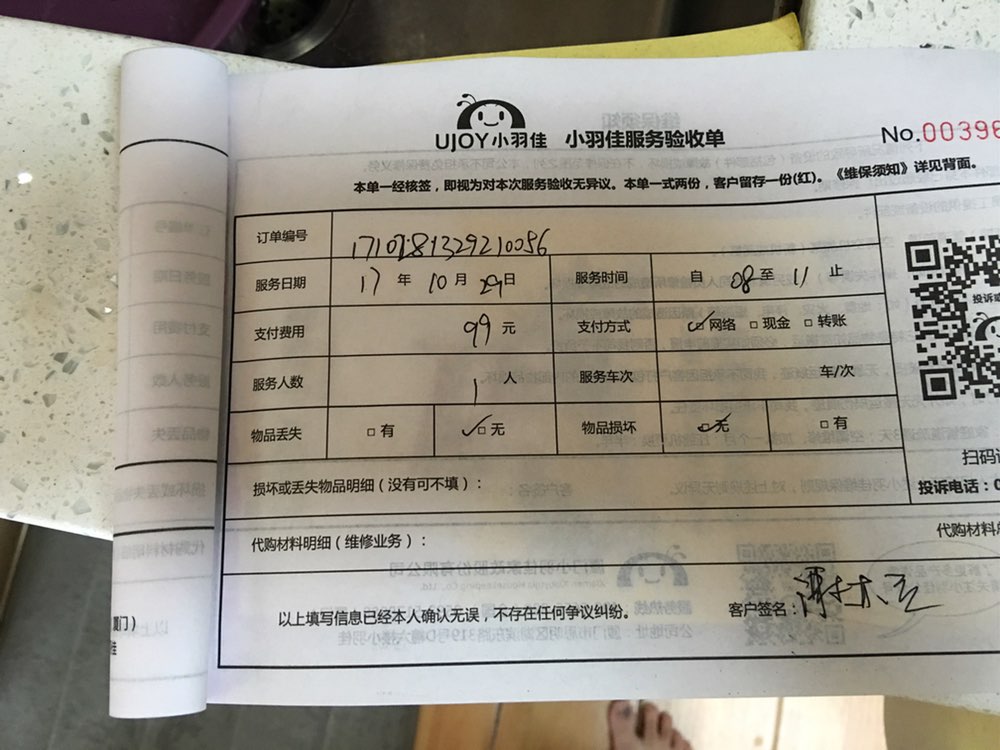 UJOY小羽佳 小羽佳服务验收单 No.00396
本单一经核签，即视为对本次服务验收无异议。本单一式两份，客户留存一份(红)。《维保须知》详见背面。
订单编号
服务日期 17 年 10 月 29 日 服务时间 自 08 至 11 止
支付费用 99 元 支付方式 ☑网络 □现金 □转账
服务人数 1 人 服务车次 车/次
物品丢失 □有 ☑无 物品损坏 ☑无 □有
投诉
扫码
损坏或丢失物品明细（没有可不填）： 投诉电话：0
代购材料明细（维修业务）： 代购材料
以上填写信息已经本人确认无误，不存在任何争议纠纷。 客户签名：
厦门）
佳